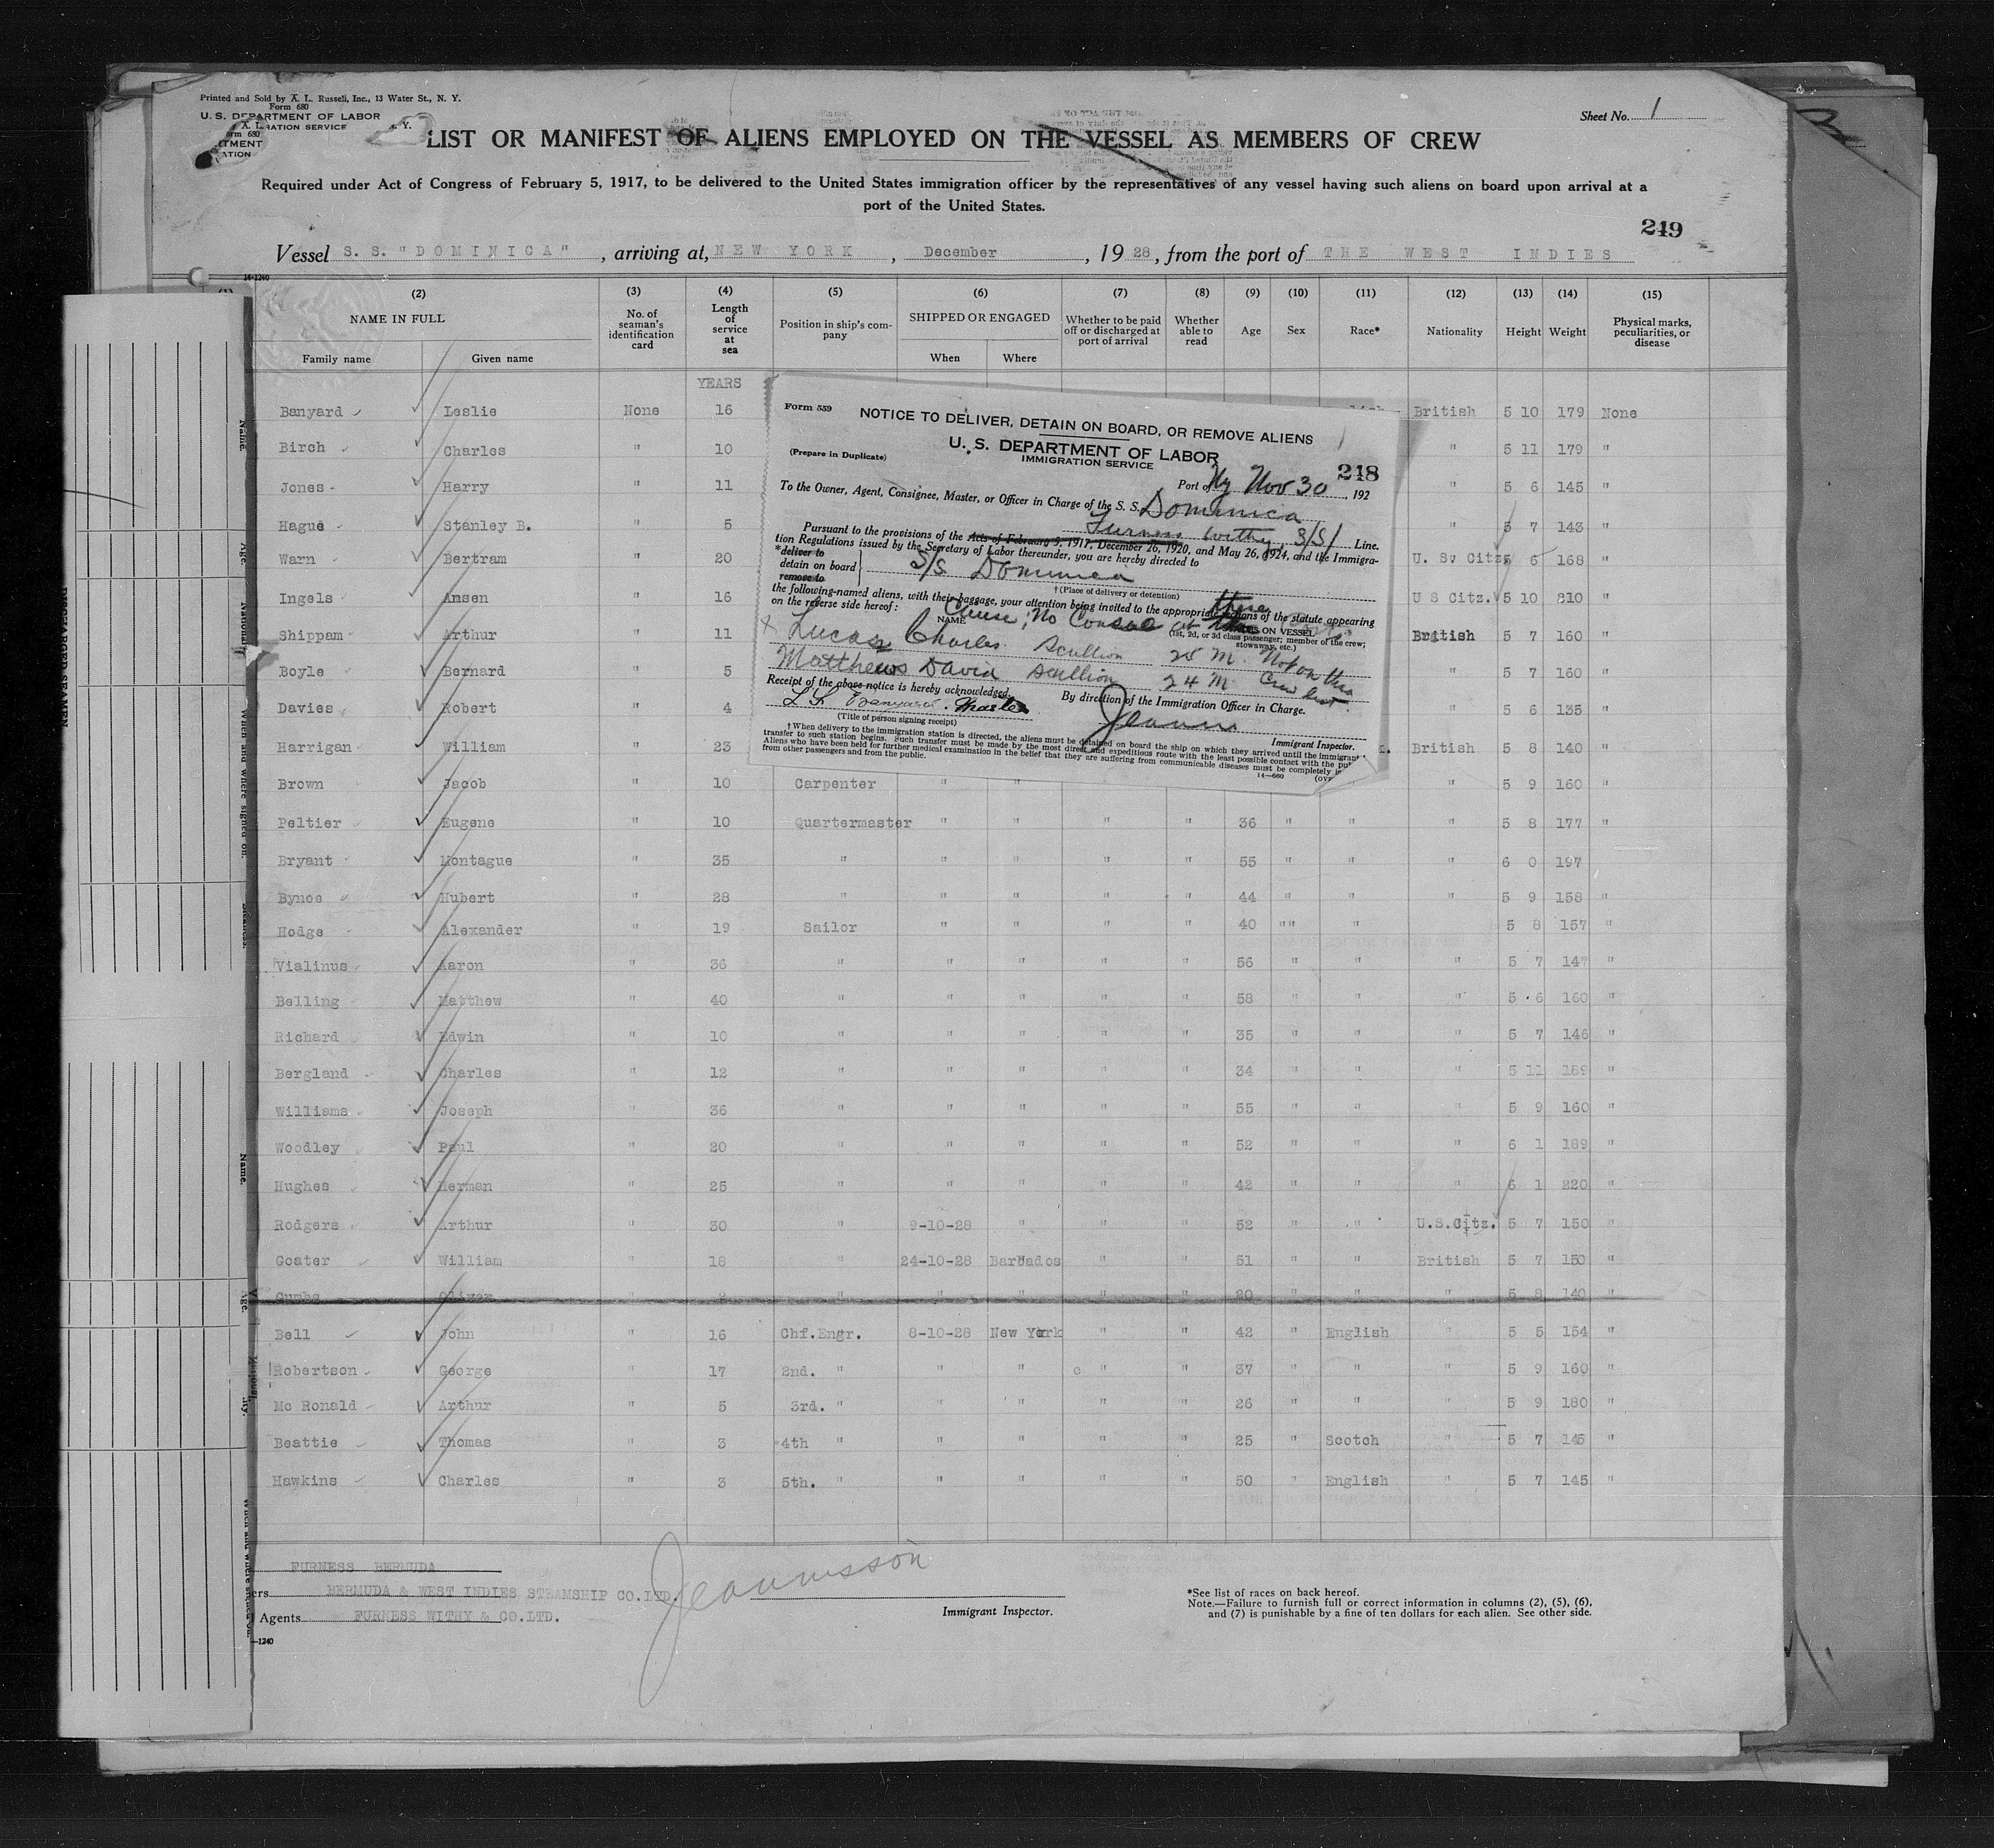 Printed and Sold by A. L. Russell, Inc., 13 Water St., N. Y.
Form 680
U. S. DEPARTMENT OF LABOR
IMMIGRATION SERVICE
Sheet No. 1
LIST OR MANIFEST OF ALIENS EMPLOYED ON THE VESSEL AS MEMBERS OF CREW
Required under Act of Congress of February 5, 1917, to be delivered to the United States immigration officer by the representatives of any vessel having such aliens on board upon arrival at a
port of the United States.
249
Vessel S. S. "DOMINICA", arriving at, NEW YORK, December, 1928, from the port of THE WEST INDIES
14-1240
(1) (2) (3) (4) (5) (6) (7) (8) (9) (10) (11) (12) (13) (14) (15)
NAME IN FULL
Family name Given name
No. of seaman's identification card
Length of service at sea
Position in ship's company
SHIPPED OR ENGAGED
When Where
Whether to be paid off or discharged at port of arrival
Whether able to read
Age Sex Race* Nationality Height Weight
Physical marks, peculiarities, or disease
YEARS
Banyard Leslie None 16 British 5 10 179 None
Birch Charles " 10 " 5 11 179 "
Jones Harry " 11 " 5 6 145 "
Hague Stanley B. " 5 " 5 7 143 "
Warn Bertram " 20 U. Sv Citz 5 6 168 "
Ingels Ansen " 16 U S Citz. 5 10 210 "
Shippam Arthur " 11 British 5 7 160 "
Boyle Bernard " 5 " 5 7 160 "
Davies Robert " 4 " 5 6 135 "
Harrigan William " 23 British 5 8 140 "
Brown Jacob " 10 Carpenter " " " 5 9 160 "
Peltier Eugene " 10 Quartermaster " " " " 36 " " " 5 8 177 "
Bryant Montague " 35 " " " " " 55 " " " 6 0 197
Bynoe Hubert " 28 " " " " " 44 " " " 5 9 158 "
Hodge Alexander " 19 Sailor " " " " 40 "" " 5 8 157 "
Vialinus Aaron " 36 " " " " " 56 " " " 5 7 147 "
Belling Matthew " 40 " " " " " 58 " " " 5 6 160 "
Richard Edwin " 10 " " " " " 35 " " " 5 7 146 "
Bergland Charles " 12 " " " " " 34 " " " 5 11 189 "
Williams Joseph " 36 " " " " " 55 " " " 5 9 160 "
Woodley Paul " 20 " " " " " 52 " " " 6 1 189 "
Hughes Herman " 25 " " " " " 42 " " " 6 1 220 "
Rodgers Arthur " 30 " 9-10-28 " " " 52 " " U.S.Citz. 5 7 150 "
Goater William " 18 " 24-10-28 Barbados " " 51 " " British 5 7 150 "
Gumbs Oliver " 2 " " " " " 20 " " " 5 8 140 "
Bell John " 16 Chf.Engr. 8-10-28 New York " " 42 " English " 5 5 154 "
Robertson George " 17 2nd. " " " " " 37 " " " 5 9 160 "
Mc Ronald Arthur " 5 3rd. " " " " " 26 " " " 5 9 180 "
Beattie Thomas " 3 4th " " " " " 25 " Scotch " 5 7 145 "
Hawkins Charles " 3 5th. " " " " " 50 " English " 5 7 145 "
Form 559
NOTICE TO DELIVER, DETAIN ON BOARD, OR REMOVE ALIENS
U. S. DEPARTMENT OF LABOR
IMMIGRATION SERVICE
(Prepare in Duplicate)
248
Port of Ny Nov 30, 192
To the Owner, Agent, Consignee, Master, or Officer in Charge of the S. S. Dominica
Furness Withy S/S/ Line.
Pursuant to the provisions of the Acts of February 5, 1917, December 26, 1920, and May 26, 1924, and the Immigra-
tion Regulations issued by the Secretary of Labor thereunder, you are hereby directed to
*deliver to
detain on board
remove to
S/S Dominica
†(Place of delivery or detention)
the following-named aliens, with their baggage, your attention being invited to the appropriate portions of the statute appearing
on the reverse side hereof:
Cause, No Consul at there
NAME
ON VESSEL
(1st, 2d, or 3d class passenger; member of the crew; stowaway, etc.)
x Lucas Charles Scullion 25 M. Not on this
Matthews David Scullion 24 M. Crew list.
Receipt of the above notice is hereby acknowledged.
By direction of the Immigration Officer in Charge.
L F Banyard. Master
(Title of person signing receipt)
Immigrant Inspector.
†When delivery to the immigration station is directed, the aliens must be detained on board the ship on which they arrived until the immigrant
transfer to such station begins. Such transfer must be made by the most direct and expeditious route with the least possible contact with the pu
Aliens who have been held for further medical examination in the belief that they are suffering from communicable diseases must be completely
from other passengers and from the public.
14—660
FURNESS BERMUDA
ers BERMUDA & WEST INDIES STEAMSHIP CO.LTD.
Agents FURNESS WITHY & CO.LTD.
—1240
Immigrant Inspector.
*See list of races on back hereof.
Note.—Failure to furnish full or correct information in columns (2), (5), (6),
and (7) is punishable by a fine of ten dollars for each alien. See other side.
DISCHARGED SEAMEN
Name.
Age.
When and where signed on.
Name.
Age.